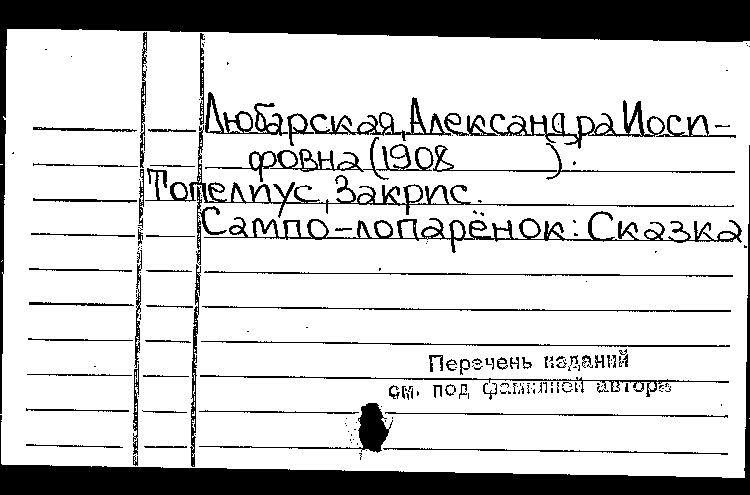 Любарская, Александра Иоси-
фовна (1908 ).
Топелиус, Закрис.
Сампо-лопарёнок: Сказка
Перечень изданий
см. под фамилией автора